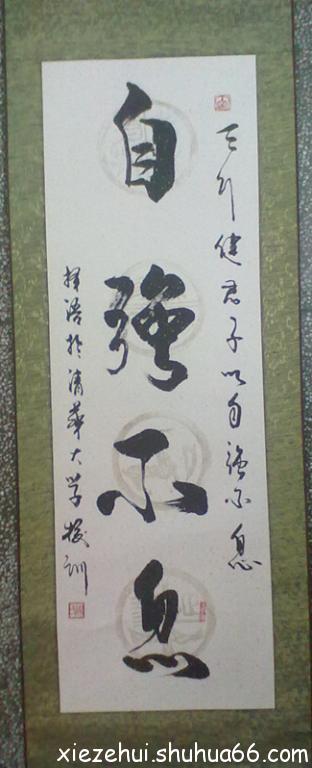 天行健君子以自強不息
自強不息
择语於清華大学校訓
xiezehui.shuhua66.com